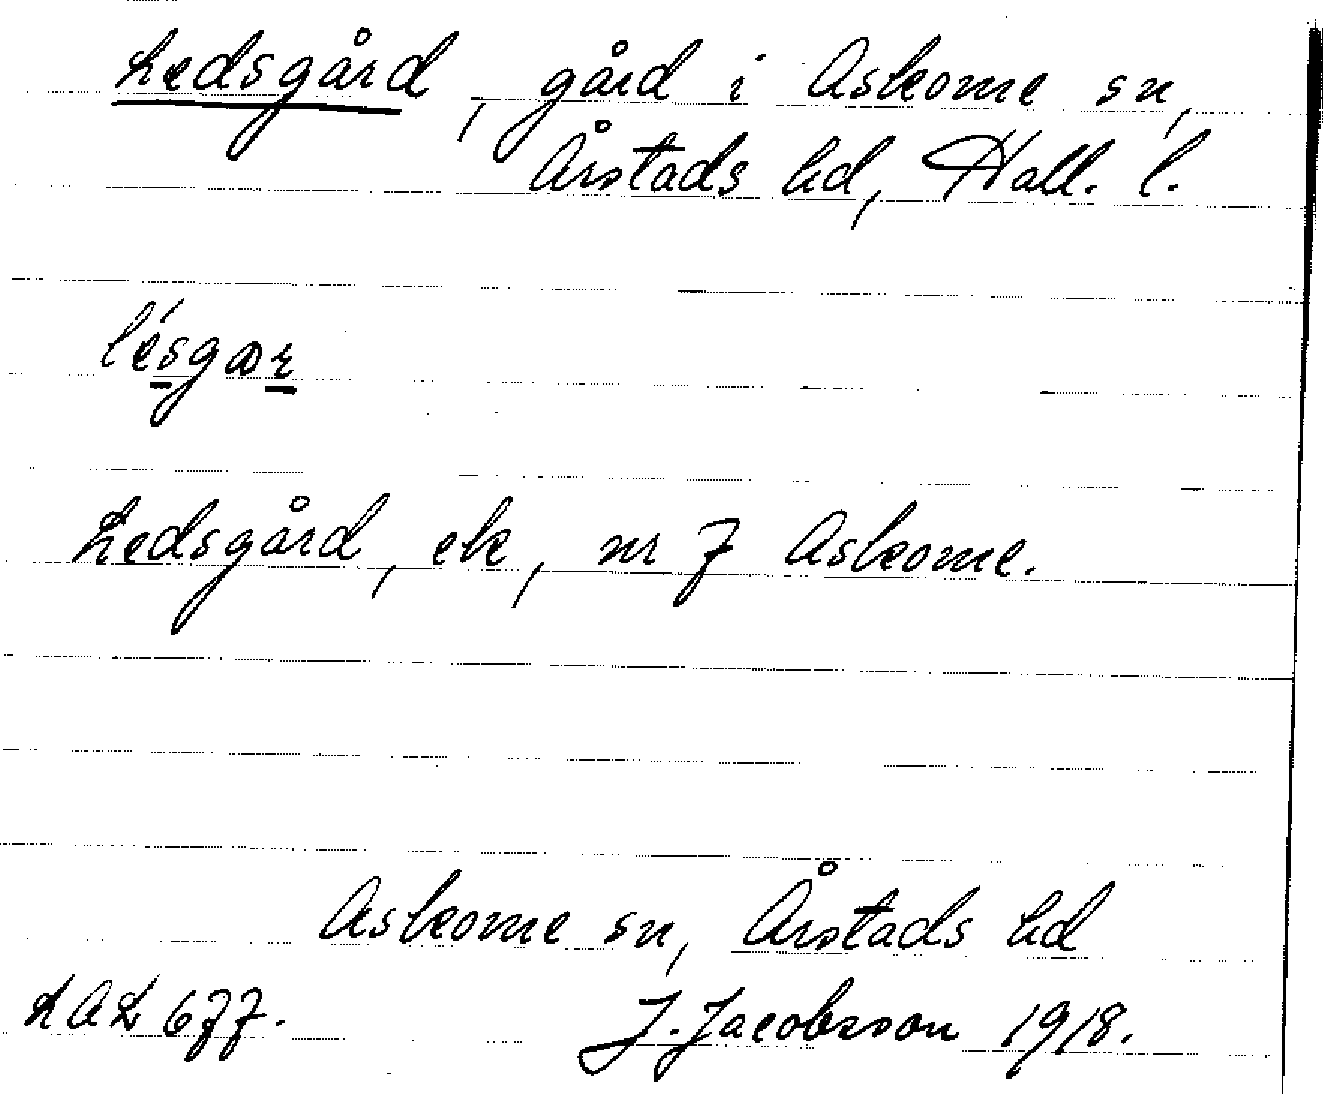 Ledsgård, gård i Askome sn,
Årstads hd, Hall. l.
lésgær
Ledsgård, ek, nr 7 Askome.
Askome sn, Årstads hd
LAL 677. J. Jacobsson 1918.